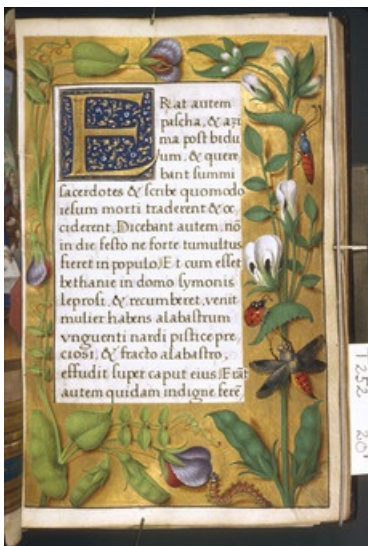 ERat autem
pascha, & azi
ma post bidu
um, & quere,
bant summi
sacerdotes & scribe quomodo
iesum morti traderent & oc,
ciderent. Dicebant autem. nō
in die festo ne forte tumultus
fieret in populo. Et cum esset
bethanie in domo symonis
leprosi, & recumberet, venit
mulier habens alabastrum
vnguenti nardi pistice pre,
ciosi. & fracto alabastro,
effudit super caput eius. Erāt
autem quidam indigne ferē
T252 20